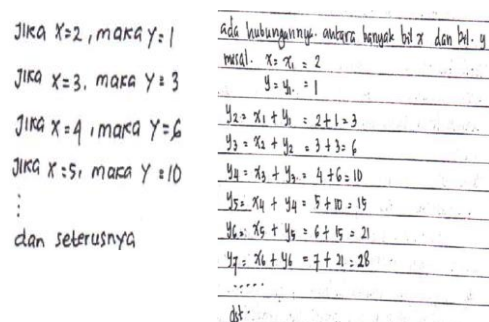 Jika X=2, maka Y=1
Jika X=3, maka Y=3
Jika X=4, maka Y=6
Jika X=5, maka Y=10
⋮
dan seterusnya
ada hubungannya antara banyak bil x dan bil. y
misal. x = x₁ = 2
y = y₁ = 1
y₂ = x₁ + y₁ = 2+1 = 3
y₃ = x₂ + y₂ = 3+3 = 6
y₄ = x₃ + y₃ = 4+6 = 10
y₅ = x₄ + y₄ = 5+10 = 15
y₆ = x₅ + y₅ = 6+15 = 21
y₇ = x₆ + y₆ = 7+21 = 28
.....
dst.